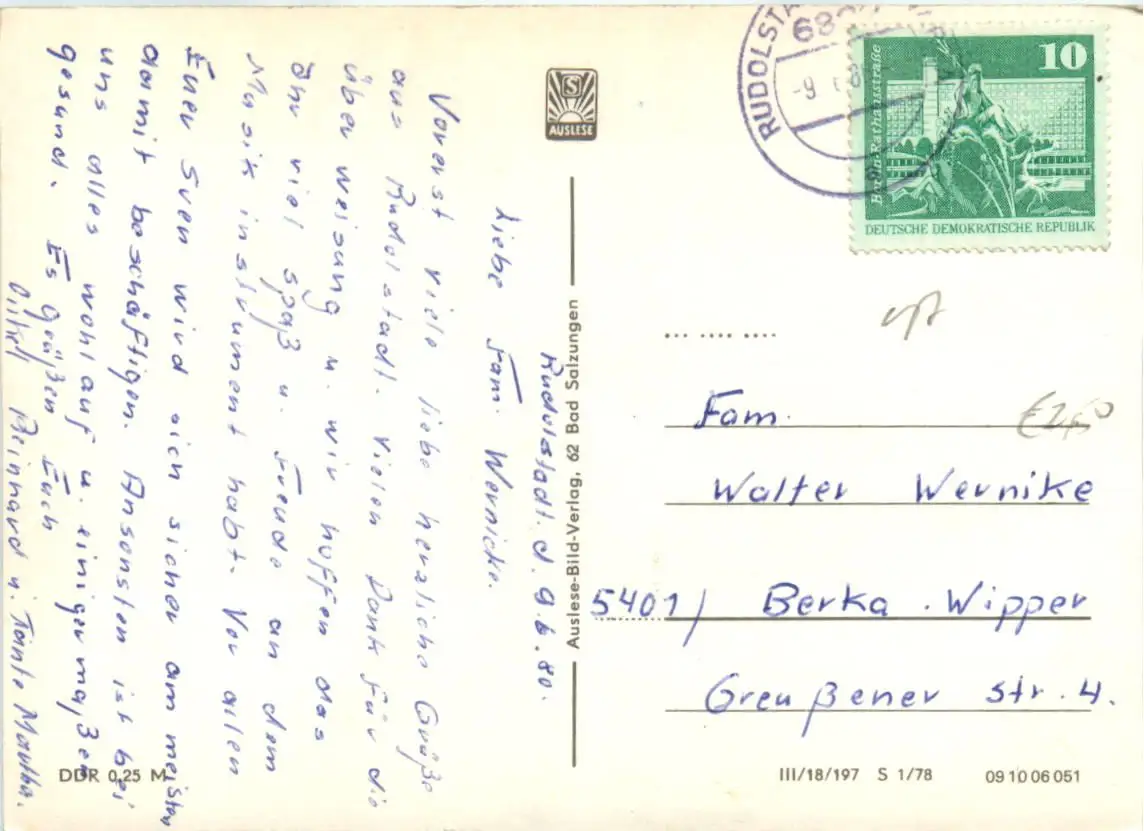 Rudolstadt. d. 9.6.80.
Liebe Fam. Wernicke.
Vorerst viele liebe herzliche Grüße
aus Rudolstadt. Vielen Dank für die
Überweisung u. wir hoffen das
Ihr viel Spaß u. Freude an dem
Musikinstrument habt. Vor allen
Euer Sven wird sich sicher am meisten
damit beschäftigen. Ansonsten ist bei
uns alles wohlauf u. einigermaßen
gesund. Es grüßen Euch
Onkel Reinhard u. Tante Martha.
DDR 0,25 M
AUSLESE
Auslese-Bild-Verlag, 62 Bad Salzungen
RUDOLSTA
682
-9
10
Berlin-Rathausstraße
DEUTSCHE DEMOKRATISCHE REPUBLIK
€2,50
Fam.
Walter Wernike
5401/ Berka. Wipper
Greußener Str. 4.
III/18/197 S 1/78 09 10 06 051